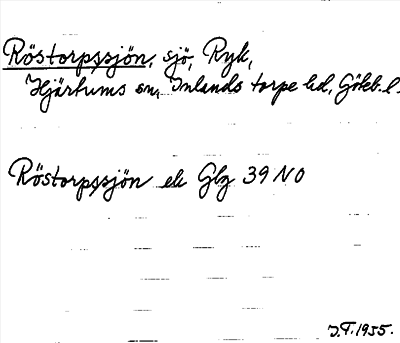 Röstorpssjön, sjö, Ryk,
Hjärtums sn, Inlands torpe hd, Göteb. l.
Röstorpssjön ek Glg 39 NO
J.T. 1955.